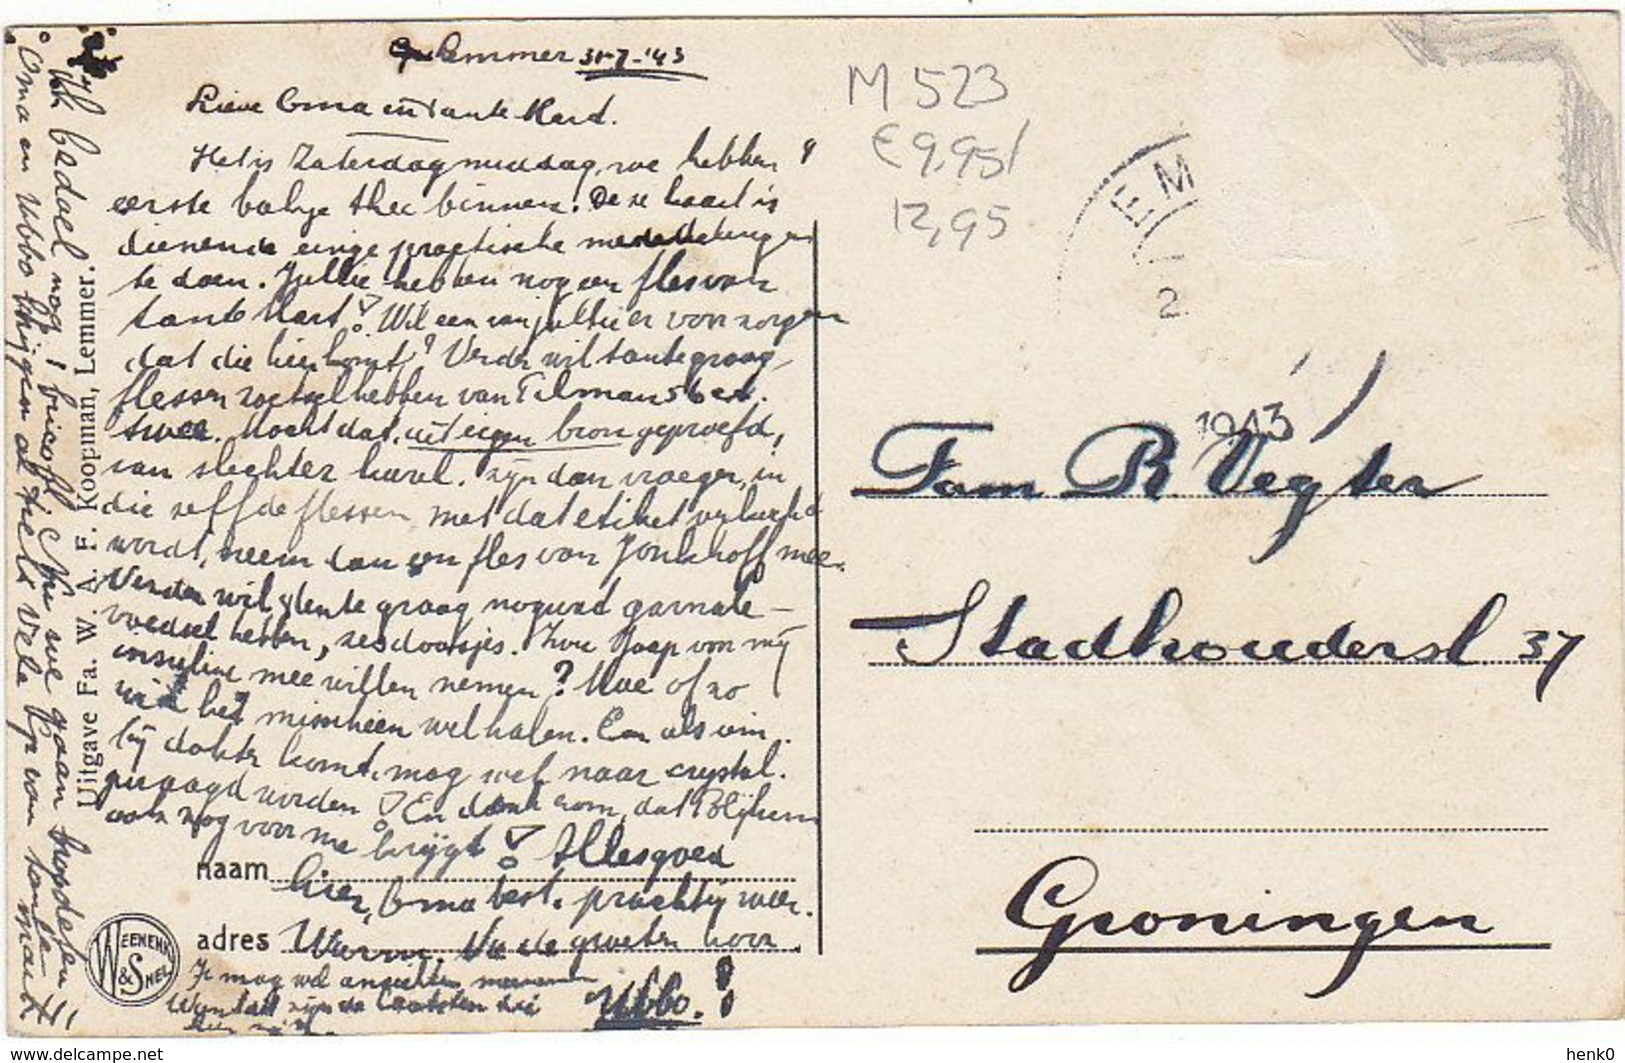 Lemmer 31-7-'43
Lieve Oma en Tante Mart.
Het is Zaterdagmiddag, we hebben 't
eerste bakje thee binnen. Deze kaart is
dienende enige practische mededelingen
te doen. Jullie hebben nog een fles van
tante Mart! Wil een van jullie er voor zorgen
dat die hier komt? Verder wil tante graag
flessen zoetsel hebben van Tilmans
twee. Mocht dat, uit eigen bron geproefd,
van slechter kwal. zijn dan vroeger, in
die zelfde flessen met dat etiket verkocht
wordt, neem dan een fles van Jonkhoff mee.
Verder wil tante graag nog wat garnale-
voedsel hebben, zes doosjes. Zou Jaap van mij
insuline mee willen nemen? Moe of zo
wil het misschien wel halen. En als oom
bij dokter komt, mag wel naar crystal.
gevraagd worden! En denk erom, dat Blijham
ook nog voor me krijgt! Alles goed
naam hier, Oma best. prachtig weer.
adres Warm. Nu de groeten hoor
Ubbo!
Je mag wel ansichten
Want dit zijn de laatsten die
Ik bedoel nog! briefl
we gaan
Oma en Ubbo krijgen al heel vele van tante Mart
Uitgave Fa. W. A. F. Koopman, Lemmer.
WEENENK & SNEL
M 523
€ 9,95/
12,95
EM
2
1943
Fam R. Vegter
Stadhoudersl 37
Groningen
henk0
www.delcampe.net